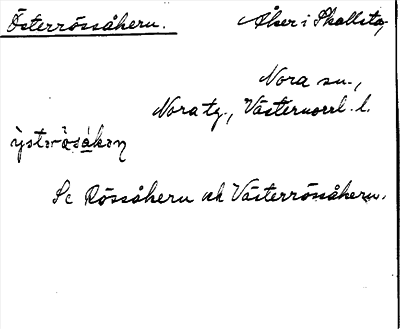 Österrössåkern. Åker i Skallsta,
Nora sn.,
Nora tg., Västernorrl. l.
ÿsterösåken
Se Rössåkern och Västerrössåkern.